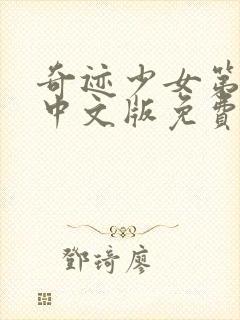 奇迹少女第
中文版免费
鄧琦廖